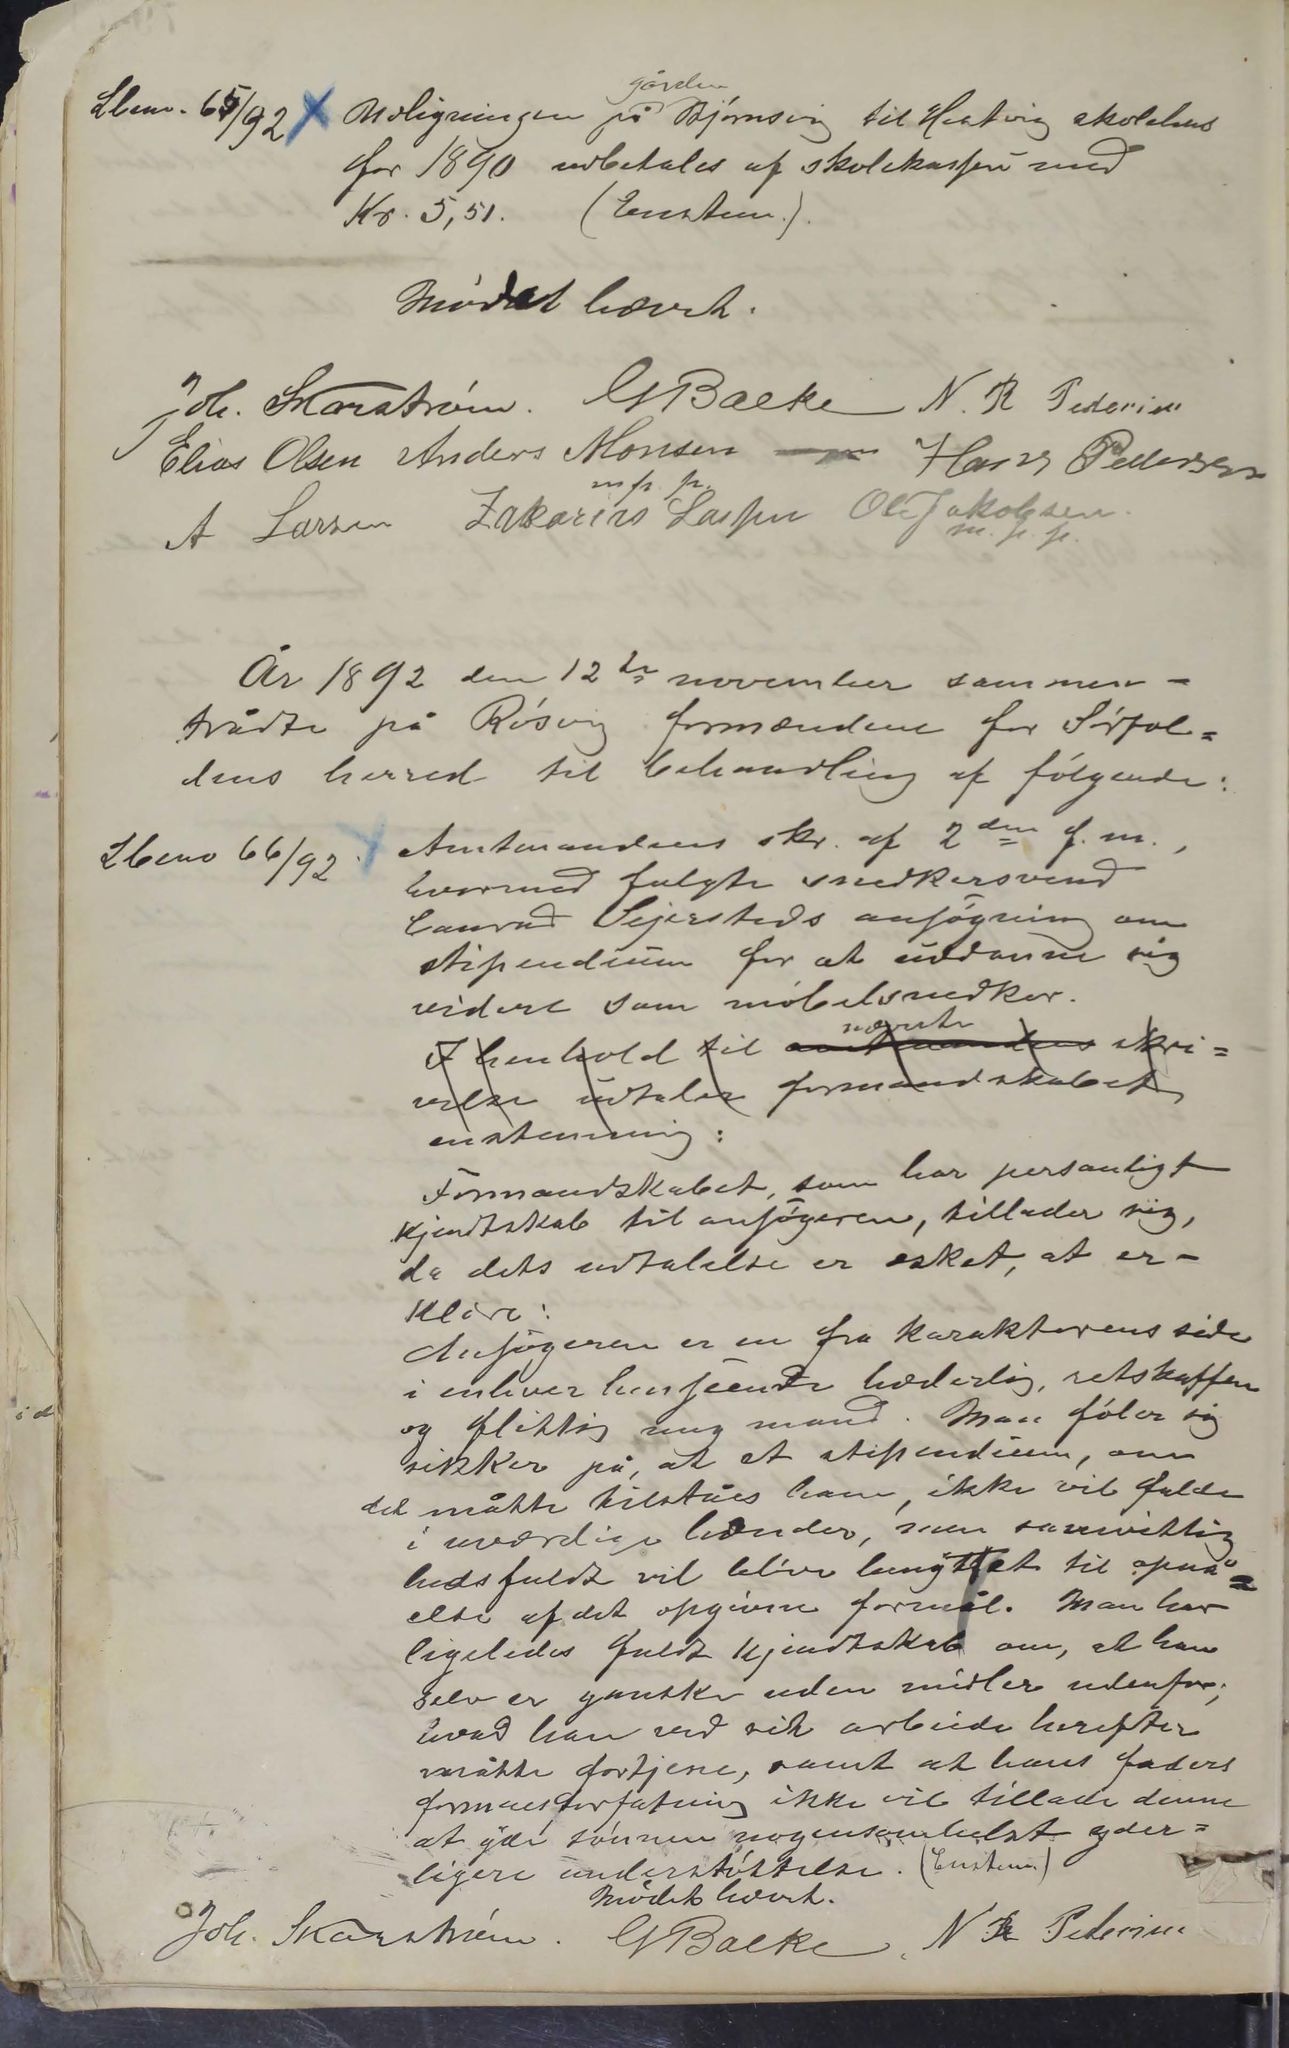 Lbno. 65/92 Udligningen på gården Bjørnsvig til Hestvig skolehus
for 1890 udbetales af skolekassen med
Kr. 5,51. (Enstem.).
Mødet hævet.
Joh. Skarstrøm. G Backe N. R Pedersen
Elias Olsen Anders Monsen Hans Pedersen
m. p. p.
A Larsen Zakarias Lassen Ole Jakobsen.
m. p. p.
År 1892 den 12te november sammen-
trådte på Røsvig formændene for Sørfol=
dens herred til behandling af følgende:
Lbno 66/92. Amtmandens skr. af 2den f. m.,
hvormed fulgte snedkersvend
Conrad Sejersteds ansøgning om
stipendium for at uddanne sig
videre som møbelsnedker.
I henhold til amtmandens nævnte skri=
velse udtaler formandskabet
enstemmig:
Formandskabet, som har personligt
kjendtskab til ansøgeren, tillader sig,
da dets udtalelse er æsket, at er-
klære:
Ansøgeren er en fra karakterens side
i enhver henseende hæderlig, retskaffen
og flittig ung mand. Man føler sig
sikker på, at et stipendium, om
det måtte tilståes ham, ikke vil falde
i uværdige hænder, men samvittig
hedsfuldt vil blive benyttet til opnå=
else af det opgivne formål. Man har
ligeledes fuldt kjendtskab om, at han
selv er ganske uden midler udenfor,
hvad han ved sit arbeide herefter
måtte fortjene, samt at hans faders
formuesforfatning ikke vil tillade denne
at yde sønnen nogensomhelst yder=
ligere understøttelse. (Enstem.)
Mødet hævet.
Joh. Skarstrøm. G Backe N R Pedersen